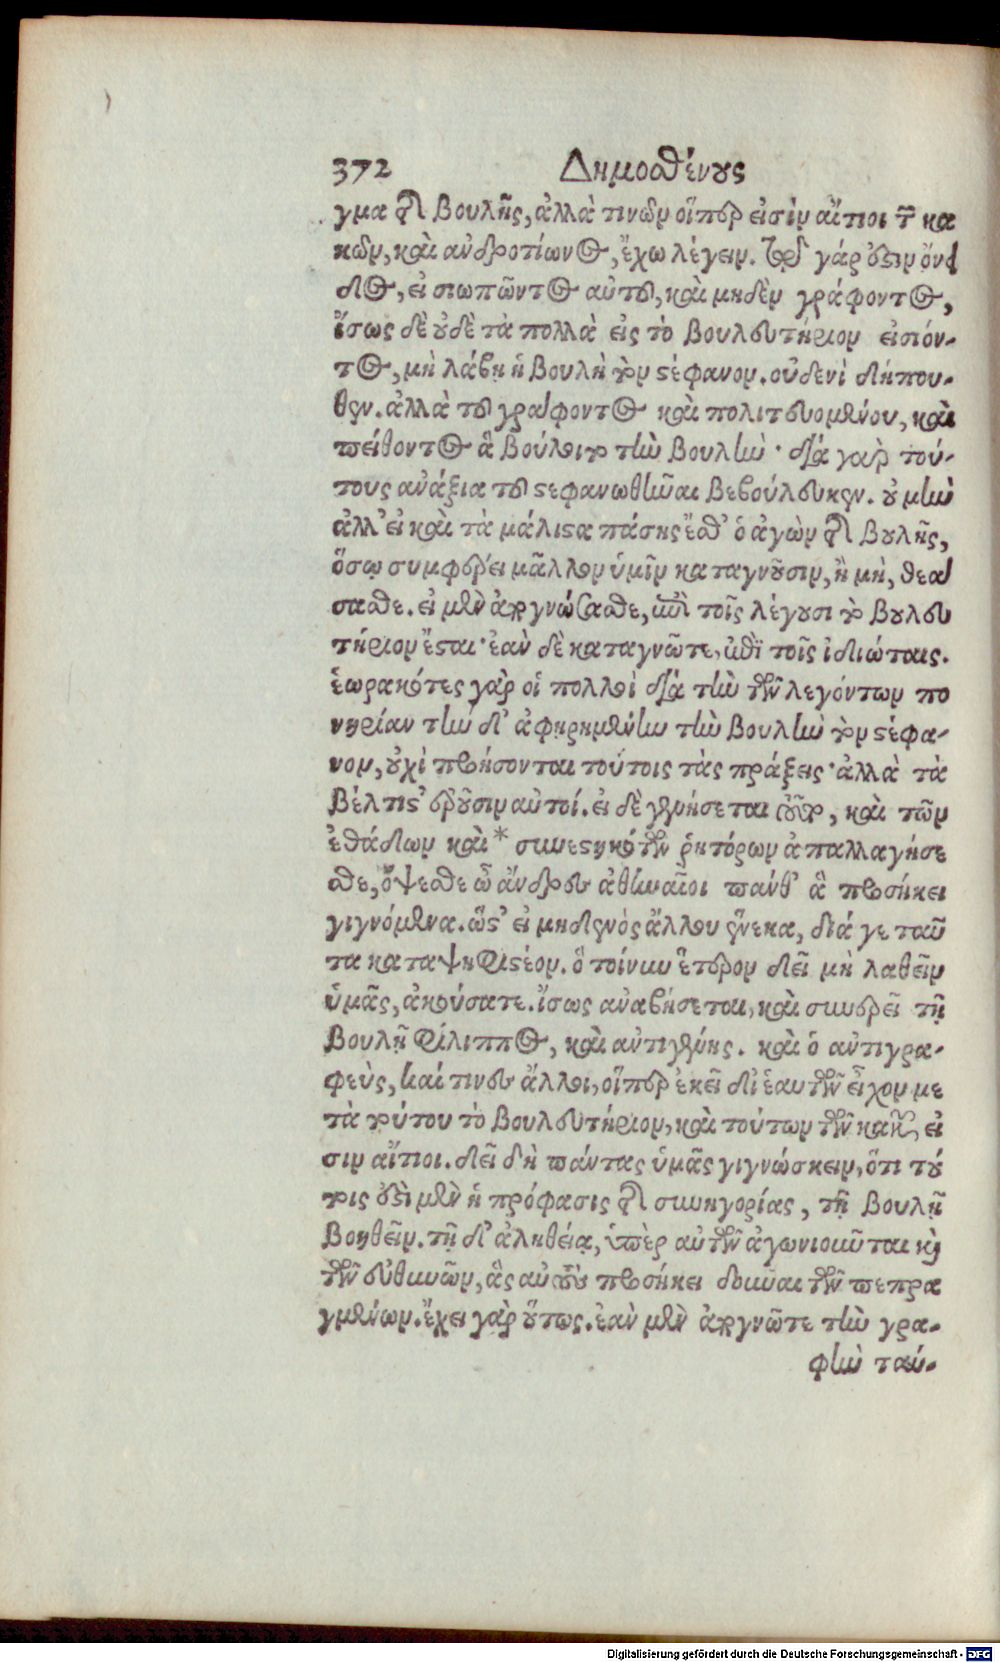 372 Δημοσθένους
γμα τῆς βουλῆς, ἀλλὰ τινῶν οἵπερ εἰσὶν αἴτιοι τῶν κα
κῶν, καὶ ἀνδροτίωνος, ἔχω λέγειν. τῷ γάρ ἐστιν ὄνει
δος, εἰ σιωπῶντος αὐτοῦ, καὶ μηδὲν γράφοντος,
ἴσως δὲ οὐδὲ τὰ πολλὰ εἰς τὸ βουλευτήριον εἰσιόν-
τος, μὴ λάβῃ ἡ βουλὴ τὸν στέφανον. οὐδενὶ δήπου-
θεν. ἀλλὰ τοῦ γράφοντος καὶ πολιτευομένου, καὶ
πείθοντος ἃ βούλοιτο τὴν βουλὴν· διὰ γὰρ τού-
τους ἀνάξια τοῦ στεφανωθῆναι βεβούλευκεν. οὐ μὴν
ἀλλ' εἰ καὶ τὰ μάλιστα πάσης ἔσθ' ὁ ἀγὼν τῆς βουλῆς,
ὅσῳ συμφέρει μᾶλλον ὑμῖν καταγνοῦσιν, ἢ μὴ, θεά
σασθε. εἰ μὲν ἀπογνώσεσθε, ἐπὶ τοῖς λέγουσι τὸ βουλευ
τήριον ἔσται· ἐὰν δὲ καταγνῶτε, ἐπὶ τοῖς ἰδιώταις.
ἑωρακότες γὰρ οἱ πολλοὶ διὰ τὴν τῶν λεγόντων πο
νηρίαν τήν δ' ἀφῃρημένην τὴν βουλὴν τὸν στέφα-
νον, οὐχὶ προήσονται τούτοις τὰς πράξεις· ἀλλὰ τὰ
βέλτιστ' ἐροῦσιν αὐτοί. εἰ δὲ γενήσεται τοῦτο, καὶ τῶν
ἐθάδων καὶ* συνεστηκότων ῥητόρων ἀπαλλαγήσε
σθε, ὄψεσθε ὦ ἄνδρες ἀθηναῖοι πάνθ' ἃ προσήκει
γιγνόμενα. ὥστ' εἰ μηδενὸς ἄλλου ἕνεκα, διά γε ταῦ
τα καταψηφιστέον. ὃ τοίνυν ἕτερον δεῖ μὴ λαθεῖν
ὑμᾶς, ἀκούσατε. ἴσως ἀναβήσεται, καὶ συνερεῖ τῇ
βουλῇ φίλιππος, καὶ ἀντιγένης. καὶ ὁ ἀντιγρα-
φεὺς, καί τινες ἄλλοι, οἵπερ ἐκεῖ δι' ἑαυτῶν εἶχον με
τὰ τούτου τὸ βουλευτήριον, καὶ τούτων τῶν κακῶν, εἰ
σιν αἴτιοι. δεῖ δὴ πάντας ὑμᾶς γιγνώσκειν, ὅτι τού
τοις ἐστὶ μὲν ἡ πρόφασις τῆς συνηγορίας, τῇ βουλῇ
βοηθεῖν. τῇ δ' ἀληθείᾳ, ὑπὲρ αὑτῶν ἀγωνιοῦνται καὶ
τῶν εὐθυνῶν, ἃς αὐτοὺς προσήκει δοῦναι τῶν πεπρα
γμένων. ἔχει γὰρ οὕτως. ἐὰν μὲν ἀπογνῶτε τὴν γρα-
φὴν ταύ-
Digitalisierung gefördert durch die Deutsche Forschungsgemeinschaft - DFG